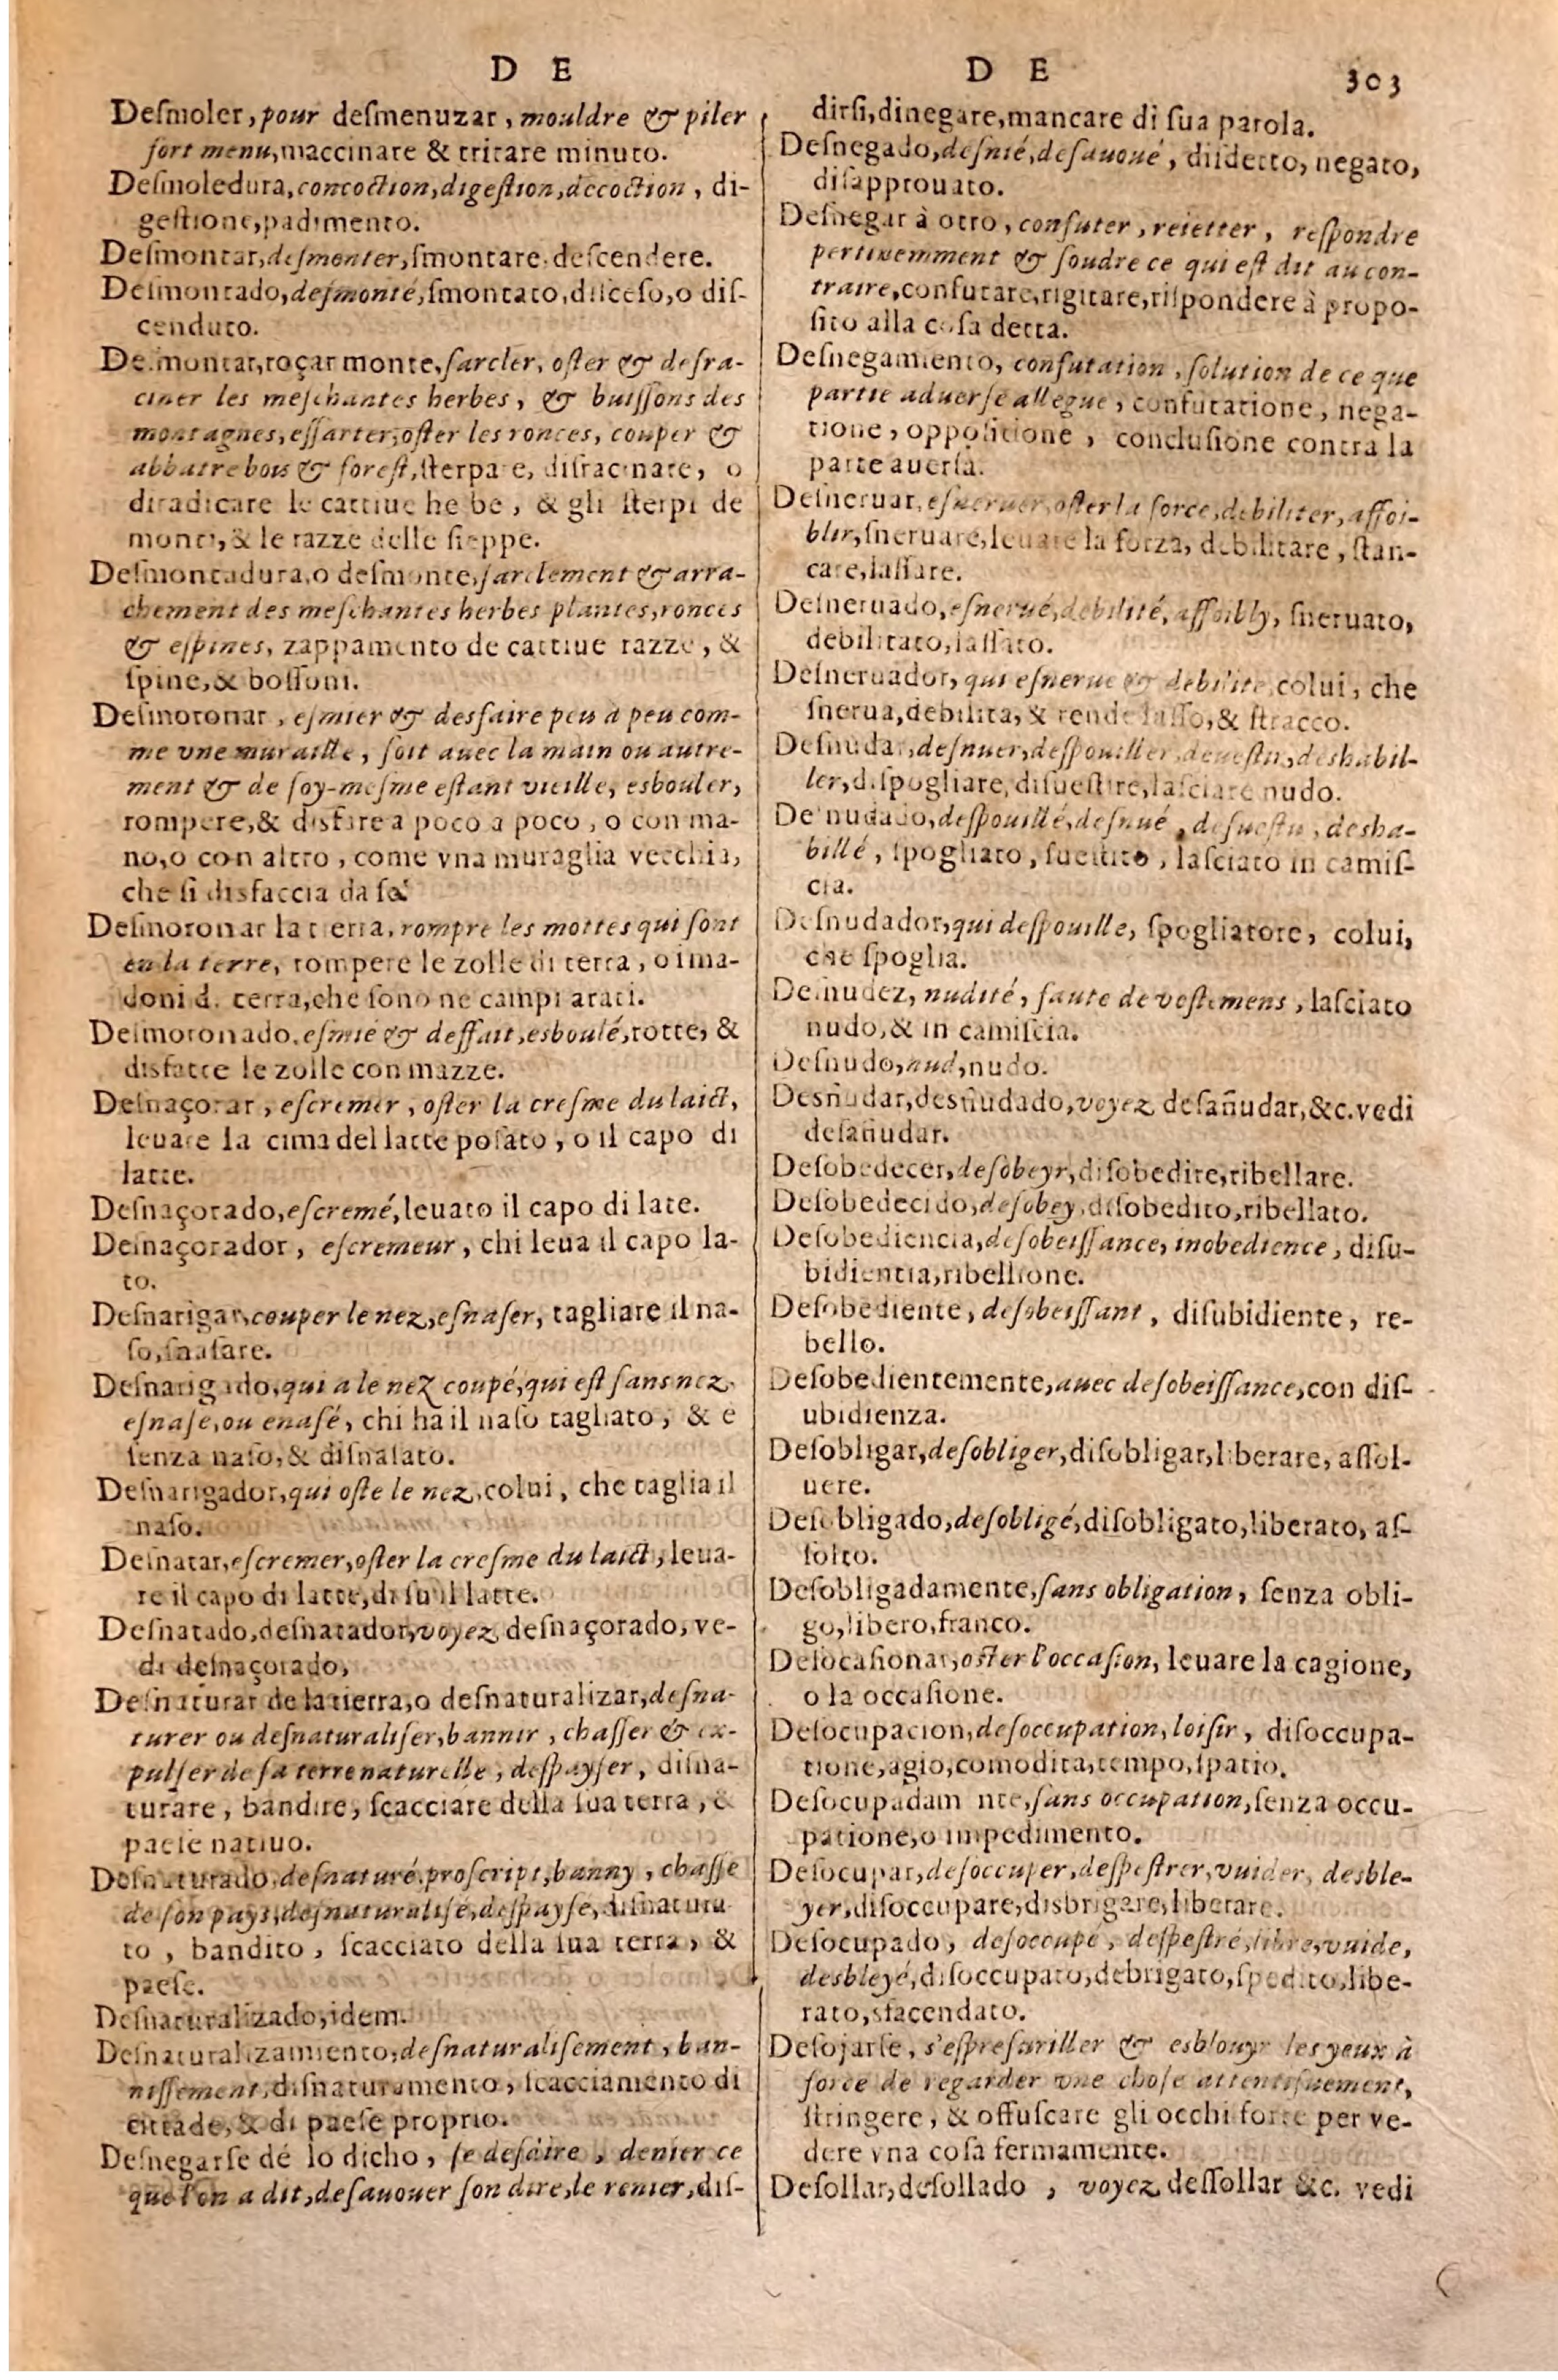 D E
Deſmoler, pour deſmenuzar, mouldre & piler
fort menu, maccinare & tritare minuto.
Deſmoledura, concoction, digeſtion, decoction, di-
geſtione, padimento.
Deſmontar, deſmonter, ſmontare, deſcendere.
Deſmontado, deſmonté, ſmontato, diſceſo, o diſ-
cenduto.
Deſmontar, roçar monte, ſarcler, oſter & deſra-
ciner les meſchantes herbes, & buiſſons des
montagnes, eſſarter, oſter les ronces, couper &
abbatre bois & foreſt, ſterpare, diſracinare, o
diradicare le cattiue herbe, & gli ſterpi de
monti, & le razze delle ſieppe.
Deſmontadura, o deſmonte, ſarclement & arra-
chement des meſchantes herbes plantes, ronces
& eſpines, zappamento de cattiue razze, &
ſpine, & boſſoni.
Deſmoronar, eſmier & desfaire peu a peu com-
me vne muraille, ſoit auec la main ou autre-
ment & de ſoy-meſme eſtant vieille, esbouler,
rompere, & disfare a poco a poco, o con ma-
no, o con altro, come vna muraglia vecchia,
che ſi disfaccia da ſe.
Deſmoronar la tierra, rompre les mottes qui ſont
en la terre, rompere le zolle di terra, o ima-
doni di terra, che ſono ne campi arati.
Deſmoronado, eſmié & deffait, esboulé, rotte, &
disfatte le zolle con mazze.
Deſnaçorar, eſcremer, oſter la creſme du laict,
leuare la cima del latte poſato, o il capo di
latte.
Deſnaçorado, eſcremé, leuato il capo di late.
Deſnaçorador, eſcremeur, chi leua il capo la-
to.
Deſnarigar, couper le nez, eſnaſer, tagliare il na-
ſo, ſnaſare.
Deſnarigado, qui a le nez coupé, qui eſt ſans nez,
eſnaſe, ou enaſé, chi ha il naſo tagliato, & e
ſenza naſo, & diſnaſato.
Deſnarigador, qui oſte le nez, colui, che taglia il
naſo.
Deſnatar, eſcremer, oſter la creſme du laict, leua-
re il capo di latte, di ſu il latte.
Deſnatado, deſnatador, voyez deſnaçorado, ve-
di deſnaçorado,
Deſnaturar de la tierra, o deſnaturalizar, deſna-
turer ou deſnaturaliſer, bannir, chaſſer & ex-
pulſer de ſa terre naturelle, deſpayſer, diſna-
turare, bandire, ſcacciare della ſua terra, &
paeſe natiuo.
Deſnaturado, deſnaturé, proſcript, banny, chaſſe
de ſon pays, deſnaturaliſé, deſpayſe, diſnatura
to, bandito, ſcacciato della ſua terra, &
paeſe.
Deſnaturalizado, idem.
Deſnaturalizamiento, deſnaturaliſement, ban-
niſſement, diſnaturamento, ſcacciamento di
cittade, & di paeſe proprio.
Deſnegarſe dé lo dicho, ſe deſdire, denier ce
que l'on a dit, deſauouer ſon dire, le renier, diſ-
D E 303
dirſi, dinegare, mancare di ſua parola.
Deſnegado, deſnié, deſauoué, diſdetto, negato,
diſapprouato.
Deſnegar à otro, confuter, reietter, reſpondre
pertinemment & ſoudre ce qui eſt dit au con-
traire, confutare, rigitare, riſpondere à propo-
ſito alla coſa detta.
Deſnegamiento, confutation, ſolution de ce que
partie aduerſe allegue, confutatione, nega-
tione, oppoſitione, concluſione contra la
parte auerſa.
Deſneruar, eſneruer, oſter la force, debiliter, affoi-
blir, ſneruare, leuare la forza, debilitare, ſtan-
care, laſſare.
Deſneruado, eſnerué, debilité, affoibly, ſneruato,
debilitato, laſſato.
Deſneruador, qui eſnerue & debilite, colui, che
ſnerua, debilita, & rende laſſo, & ſtracco.
Deſnudar, deſnuer, deſpouiller, deueſtir, deshabil-
ler, diſpogliare, diſueſtire, laſciare nudo.
Deſnudado, deſpouillé, deſnué, deſueſtu, desha-
billé, ſpogliato, ſueſtito, laſciato in camiſ-
cia.
Deſnudador, qui deſpouille, ſpogliatore, colui,
che ſpoglia.
Deſnudez, nudité, faute de veſtemens, laſciato
nudo, & in camiſcia.
Deſnudo, nud, nudo.
Desñudar, desñudado, voyez deſañudar, &c. vedi
deſañudar.
Deſobedecer, deſobeyr, diſobedire, ribellare.
Deſobedecido, deſobey, diſobedito, ribellato.
Deſobediencia, deſobeiſſance, inobedience, diſu-
bidientia, ribellione.
Deſobediente, deſobeiſſant, diſubidiente, re-
bello.
Deſobedientemente, auec deſobeiſſance, con diſ-
ubidienza.
Deſobligar, deſobliger, diſobligar, liberare, aſſol-
uere.
Deſobligado, deſobligé, diſobligato, liberato, aſ-
ſolto.
Deſobligadamente, ſans obligation, ſenza obli-
go, libero, franco.
Deſocaſionar, oſter l'occaſion, leuare la cagione,
o la occaſione.
Deſocupacion, deſoccupation, loiſir, diſoccupa-
tione, agio, comodita, tempo, ſpatio.
Deſocupadam nte, ſans occupation, ſenza occu-
patione, o impedimento.
Deſocupar, deſoccuper, deſpeſtrer, vuider, desble-
yer, diſoccupare, disbrigare, liberare.
Deſocupado, deſoccupé, deſpeſtré, libre, vuide,
desbleyé, diſoccupato, debrigato, ſpedito, libe-
rato, sfacendato.
Deſojarſe, s'eſprefariller & esblouyr les yeux à
force de regarder vne choſe attentifuement,
ſtringere, & offuſcare gli occhi forte per ve-
dere vna coſa fermamente.
Deſollar, deſollado, voyez deſſollar &c. vedi